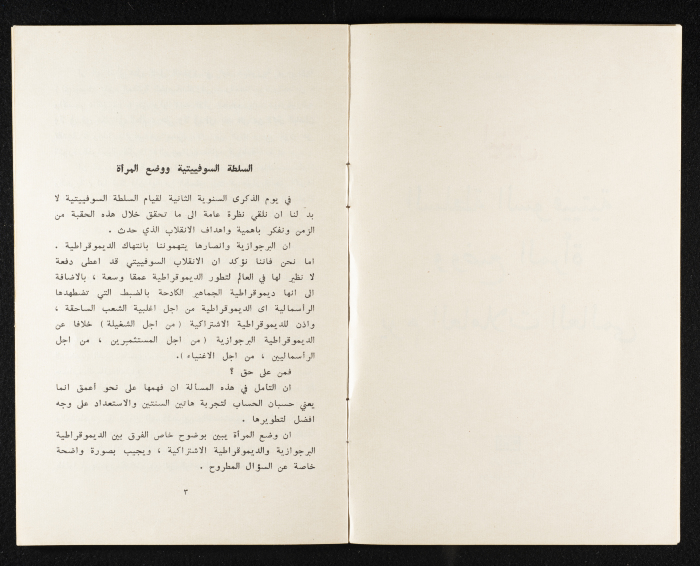 السلطة السوفييتية ووضع المرأة
في يوم الذكرى السنوية الثانية لقيام السلطة السوفييتية لا
بد لنا ان نلقي نظرة عامة الى ما تحقق خلال هذه الحقبة من
الزمن ونفكر باهمية واهداف الانقلاب الذي حدث .
ان البرجوازية وانصارها يتهموننا بانتهاك الديموقراطية .
اما نحن فاننا نؤكد ان الانقلاب السوفييتي قد اعطى دفعة
لا نظير لها في العالم لتطور الديموقراطية عمقا وسعة ، بالاضافة
الى انها ديموقراطية الجماهير الكادحة بالضبط التي تضطهدها
الرأسمالية اى الديموقراطية من اجل اغلبية الشعب الساحقة ،
واذن للديموقراطية الاشتراكية ( من اجل الشغيلة ) خلافا عن
الديموقراطية البرجوازية ( من اجل المستثمرين ، من اجل
الرأسماليين ، من اجل الاغنياء ).
فمن على حق ؟
ان التأمل في هذه المسألة ان فهمها على نحو أعمق انما
يعني حسبان الحساب لتجربة هاتين السنتين والاستعداد على وجه
افضل لتطويرها .
ان وضع المرأة يبين بوضوح خاص الفرق بين الديموقراطية
البرجوازية والديموقراطية الاشتراكية ، ويجيب بصورة واضحة
خاصة عن السؤال المطروح .
٣